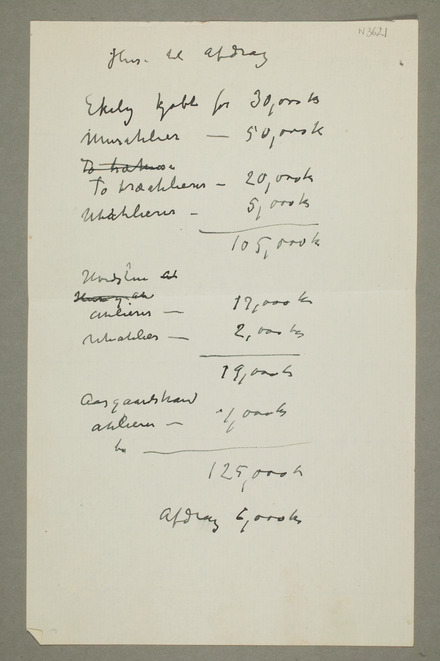 N3621
Hus til Afdrag
Ekely kjøbt for 30,000 k
Muratelier — 50,000 k
To træatelierer – 20,000 k
Uteatelierer – 5,000 k
105,000 k
Hvidsten
atelierer — 17,000 k
Uteatelier — 2,000 k
19,000 k
Aasgaardstrand
atelierer — 1,000 k
125,000 k
Afdrag 6,000 k